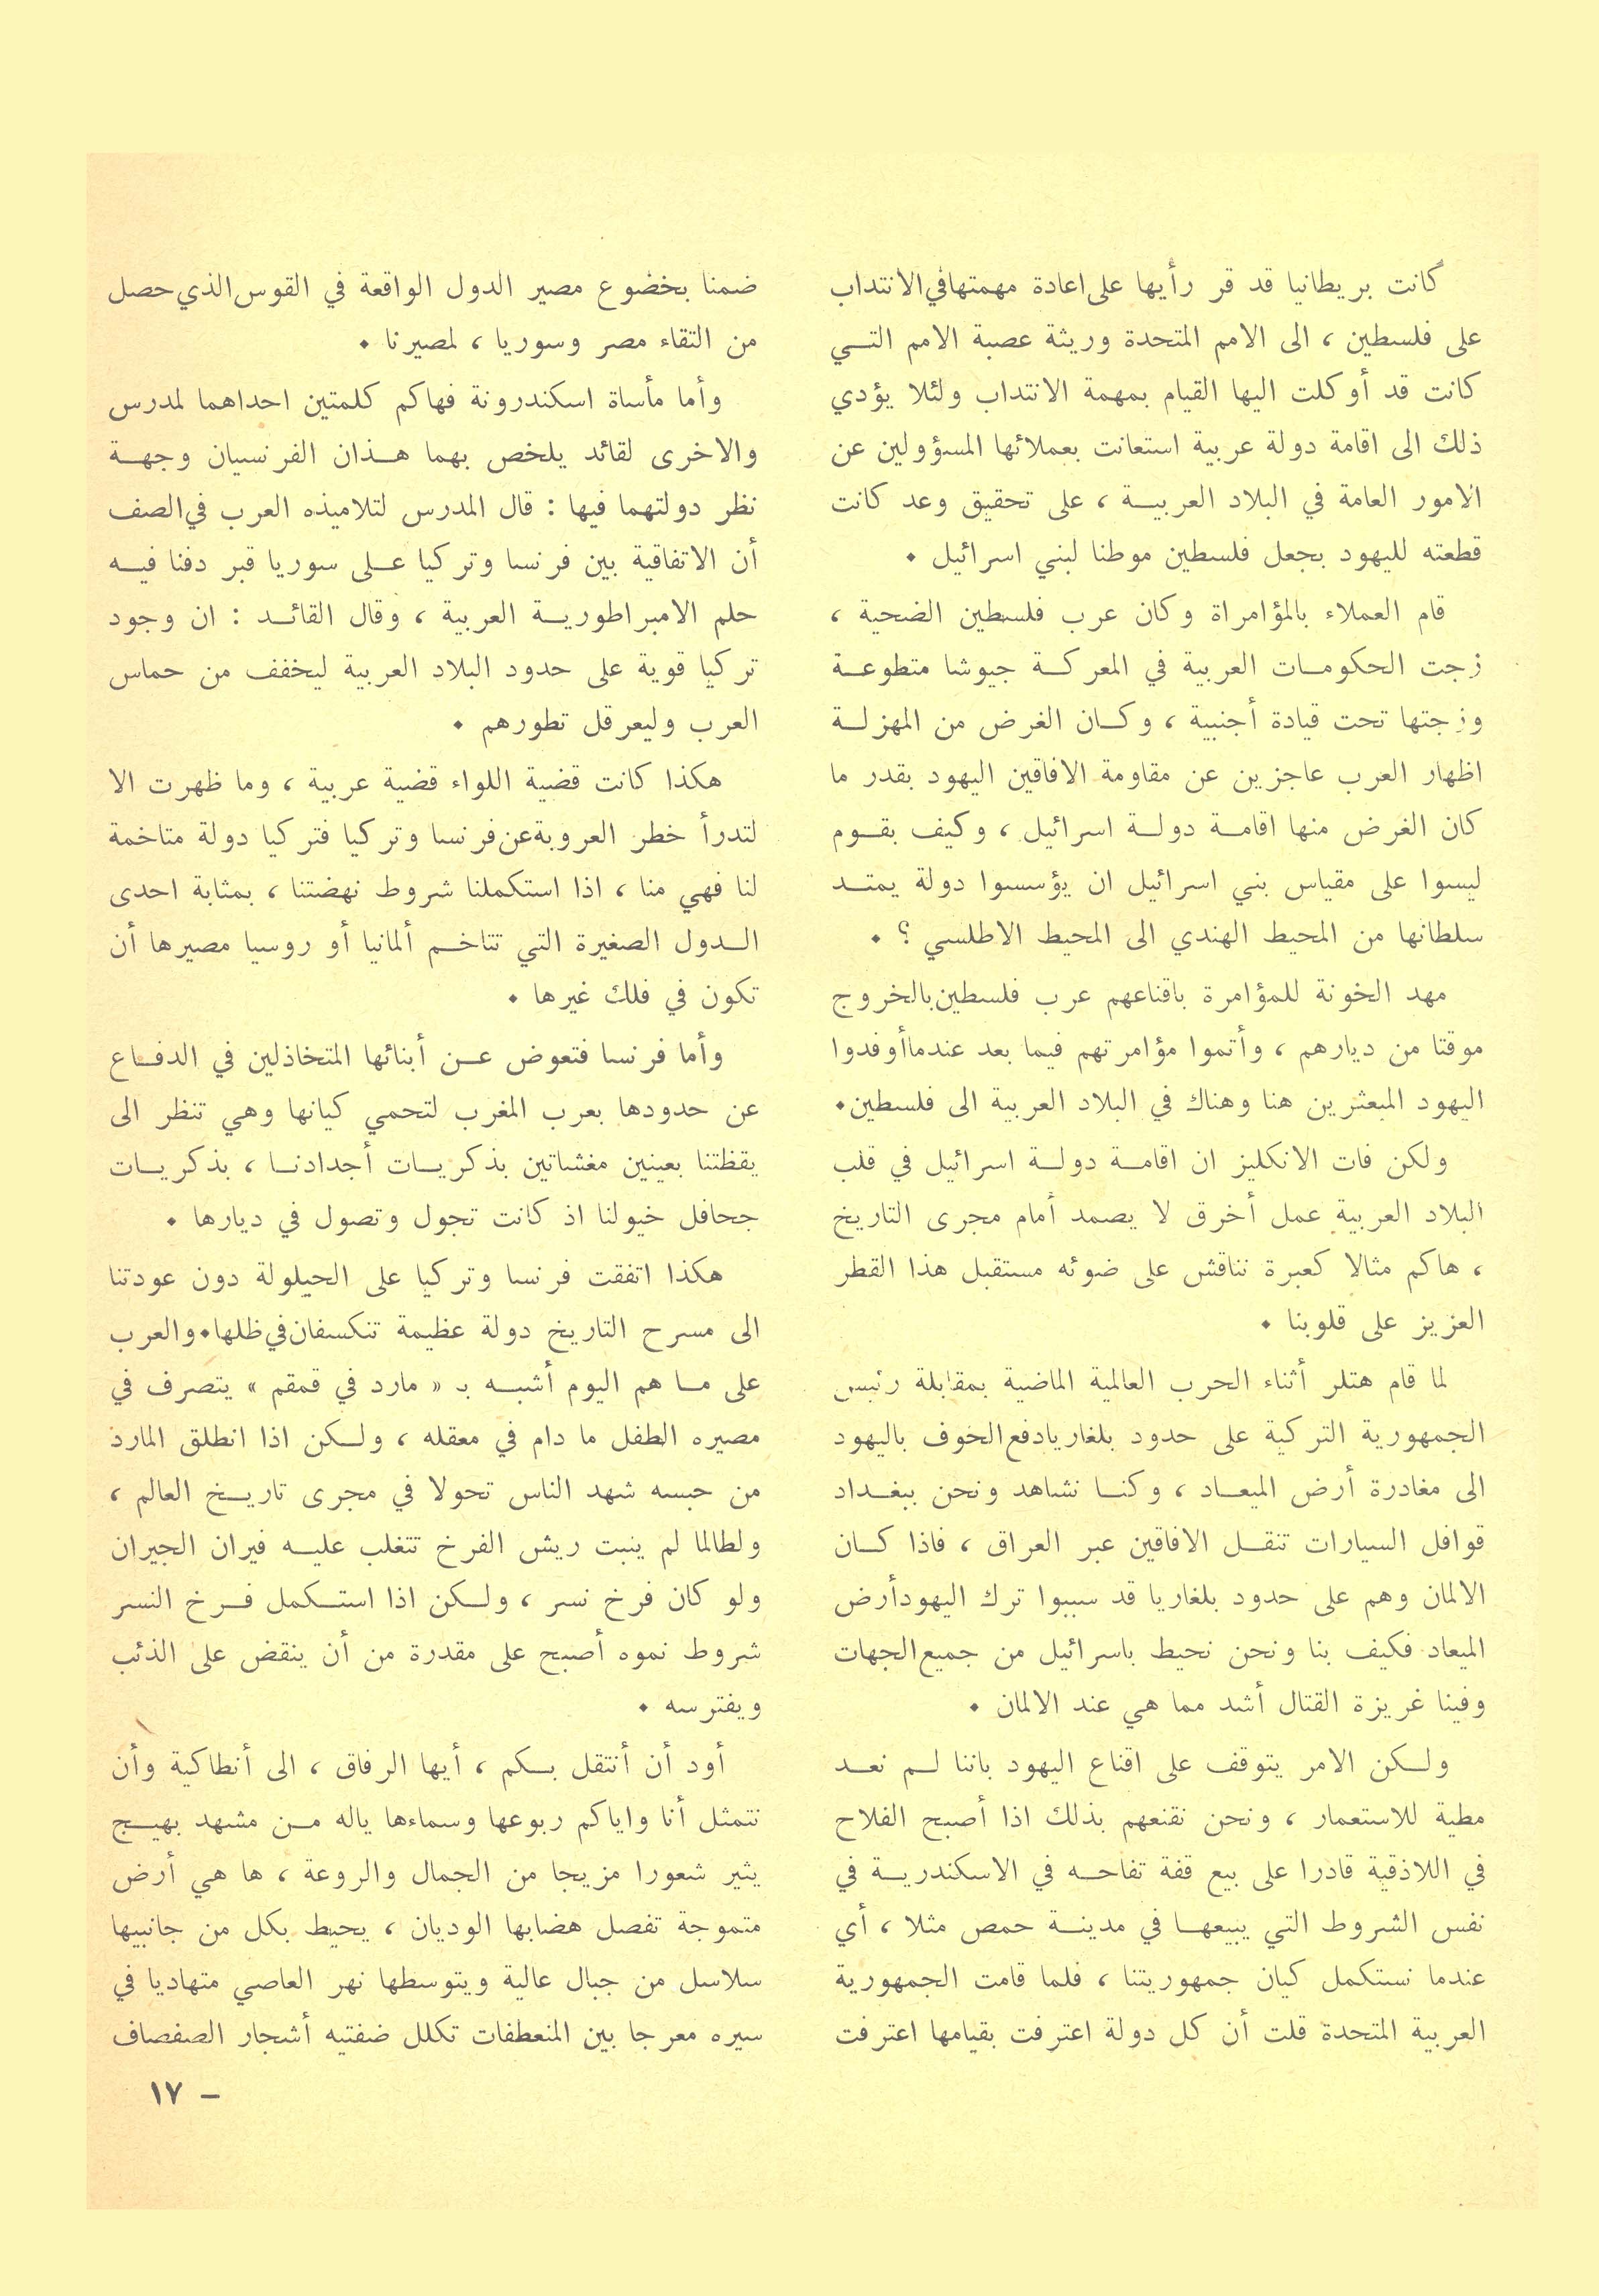 كانت بريطانيا قد قر رأيها على اعادة مهمتها في الانتداب
على فلسطين ، الى الامم المتحدة وريثة عصبة الامم التــي
كانت قد أوكلت اليها القيام بمهمة الانتداب ولئلا يؤدي
ذلك الى اقامة دولة عربية استعانت بعملائها المسؤولين عن
الامور العامة في البلاد العربيــة ، على تحقيق وعد كانت
قطعته لليهود بجعل فلسطين موطنا لبني اسرائيل .
قام العملاء بالمؤامراة وكان عرب فلسطين الضحية ،
زجت الحكومــات العربية في المعركــة جيوشا متطوعــة
وزجتها تحت قيادة أجنبية ، وكــان الغرض من المهزلــة
اظهار العرب عاجزين عن مقاومة الافاقين اليهود بقدر ما
كان الغرض منها اقامــة دولــة اسرائيل ، وكيف بقــوم
ليسوا على مقياس بني اسرائيل ان يؤسسوا دولة يمتــد
سلطانها من المحيط الهندي الى المحيط الاطلسي ؟ .
مهد الخونة للمؤامرة باقناعهم عرب فلسطين بالخروج
موقتا من ديارهم ، وأتموا مؤامرتهم فيما بعد عندما أوفدوا
اليهود المبعثرين هنا وهناك في البلاد العربية الى فلسطين .
ولكن فات الانكليز ان اقامــة دولــة اسرائيل في قلب
البلاد العربية عمل أخرق لا يصمد أمام مجرى التاريخ
، هاكم مثالا كعبرة نناقش على ضوئه مستقبل هذا القطر
العزيز على قلوبنا .
لما قام هتلر أثناء الحرب العالمية الماضية بمقابلة رئيس
الجمهورية التركية على حدود بلغاريا دفع الخوف باليهود
الى مغادرة أرض الميعــاد ، وكنــا نشاهد ونحن ببغــداد
قوافل السيارات تنقــل الافاقين عبر العراق ، فاذا كــان
الالمان وهم على حدود بلغاريا قد سببوا ترك اليهود أرض
الميعاد فكيف بنا ونحن نحيط باسرائيل من جميع الجهات
وفينا غريزة القتال أشد مما هي عند الالمان .
ولــكن الامر يتوقف على اقناع اليهود باننا لــم نعــد
مطية للاستعمار ، ونحن نقنعهم بذلك اذا أصبح الفلاح
في اللاذقية قادرا على بيع قفة تفاحــه في الاسكندريــة في
نفس الشروط التي يبيعهــا في مدينــة حمص مثلا ، أي
عندما نستكمل كيان جمهوريتنا ، فلما قامت الجمهورية
العربية المتحدة قلت أن كل دولة اعترفت بقيامها اعترفت
ضمنا بخضوع مصير الدول الواقعة في القوس الذي حصل
من التقاء مصر وسوريا ، لمصيرنا .
وأما مأساة اسكندرونة فهاكم كلمتين احداهما لمدرس
والاخرى لقائد يلخص بهما هــذان الفرنسيان وجهــة
نظر دولتهما فيها : قال المدرس لتلاميذه العرب في الصف
أن الاتفاقية بين فرنسا وتركيا علــى سوريا قبر دفنا فيــه
حلم الامبراطوريــة العربية ، وقال القائــد : ان وجود
تركيا قوية على حدود البلاد العربية ليخفف من حماس
العرب وليعرقل تطورهم .
هكذا كانت قضية اللواء قضية عربية ، وما ظهرت الا
لتدرأ خطر العروبة عن فرنسا وتركيا فتركيا دولة متاخمة
لنا فهي منا ، اذا استكملنا شروط نهضتنا ، بمثابة احدى
الــدول الصغيرة التي تتاخــم ألمانيا أو روسيا مصيرها أن
تكون في فلك غيرها .
وأما فرنسا فتعوض عــن أبنائها المتخاذلين في الدفــاع
عن حدودها بعرب المغرب لتحمي كيانها وهي تنظر الى
يقظتنا بعينين مغشاتين بذكريــات أجدادنــا ، بذكريــات
جحافل خيولنا اذ كانت تجول وتصول في ديارها .
هكذا اتفقت فرنسا وتركيا على الحيلولة دون عودتنا
الى مسرح التاريخ دولة عظيمة تنكسفان في ظلها . والعرب
على مــا هم اليوم أشبــه بـ « مارد في قمقم » يتصرف في
مصيره الطفل ما دام في معقله ، ولــكن اذا انطلق المارد
من حبسه شهد الناس تحولا في مجرى تاريــخ العالم ،
ولطالما لم ينبت ريش الفرخ تتغلب عليــه فيران الجيران
ولو كان فرخ نسر ، ولــكن اذا استــكمل فــرخ النسر
شروط نموه أصبح على مقدرة من أن ينقض على الذئب
ويفترسه .
أود أن أنتقل بــكم ، أيها الرفاق ، الى أنطاكية وأن
نتمثل أنا واياكم ربوعها وسماءها ياله مــن مشهد بهيــج
يثير شعورا مزيجا من الجمال والروعة ، ها هي أرض
متموجة تفصل هضابها الوديان ، يحيط بكل من جانبيها
سلاسل من جبال عالية ويتوسطها نهر العاصي متهاديا في
سيره معرجا بين المنعطفات تكلل ضفتيه أشجار الصفصاف
– ١٧